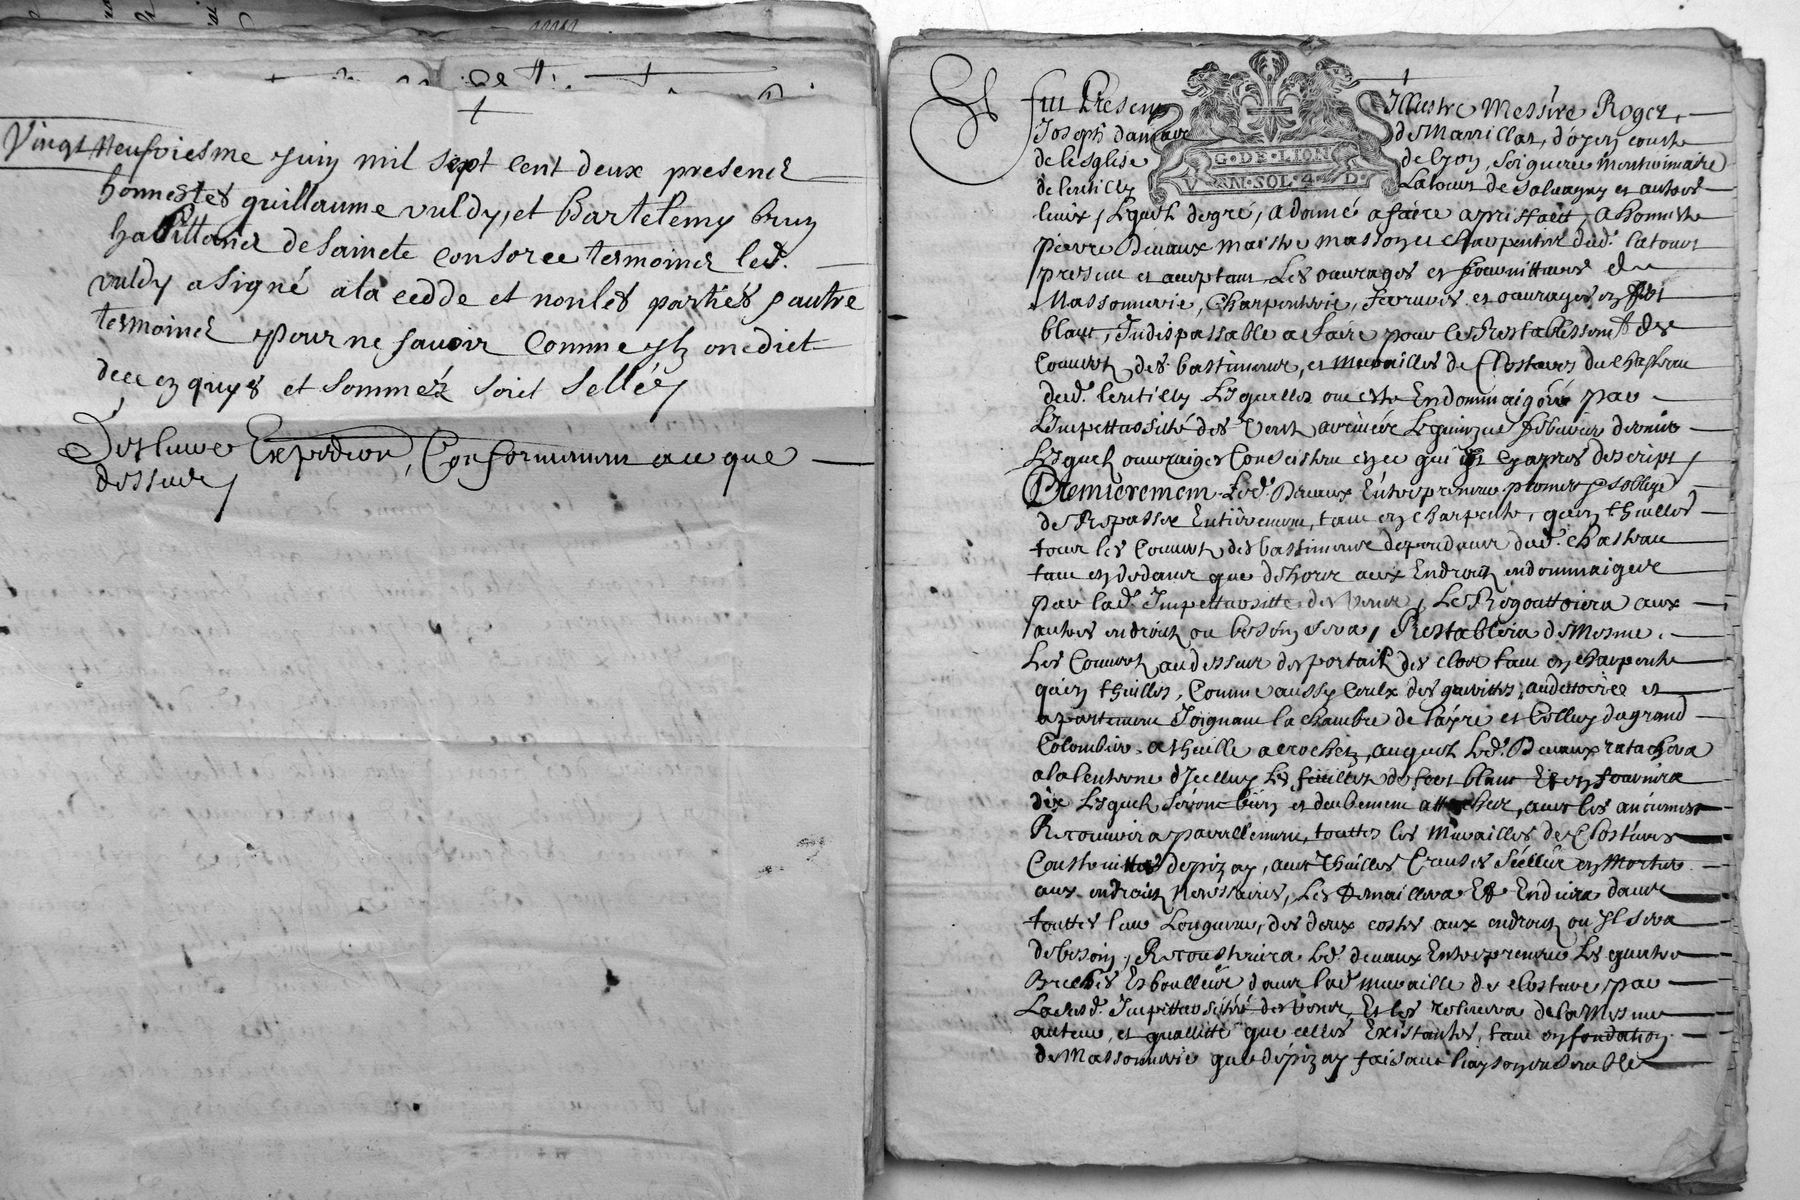 Vingt neufviesme Juin mil sept cent deux presents
honnestes guillaume vuldy, et Bartelemy brun
habittants de Saincte Consorce tesmoins led.
vuldy a signé a la cedde et non les parties & autre
tesmoins pour ne savoir Comme ilz ont dict
de ce enquys et sommés soict sellée
Dellivré Expedition, Conformement au que
dessus
fut Present Illustre Messire Roger,
Joseph damare de Marrillat, doyen comte
de lesglise de Lyon, seigneur Montwimaire
de lentilly Latour de Salvagny et autres
lieux, Lequel de gré, a donné a faire a prix faict, a honneste
pierre Devaux Maistre masson et charpentier dud. Latour
present et acceptant Les ouvrages et fournittures de
Massonnerie, Charpenterie, ferrures et ouvrages en fert
blanc, Indispassable a faire pour le Restablissemt des
Couvert des bastiments, et murailles de Clostures du chasteau
dud. lentilly Lesquelles ont esté Endommaigées par
L'Impettuosité des Vents arrivée Le quinze febvrier dernier
Lesquels ouvraiges Consistent en ce qui est cy apres descript
Premierement Led. Devaux Entrepreneur promet & soblige
de Repasser Entierement, tant en charpente, quen thuilles
tous les Couvert des bastiments dependants dud. chasteau
tant en dedans que dehors aux Endroits endommaigés
par lad. Impettuositte des Vents, Le Regouttoiera aux
autres endroits ou besoin sera, Restablira de Mesme
Les Couvert au dessus des portail des clos tant en charpente
quen thuilles, Comme aussy Ceulx des guerittes, et
apartement Joignant la chambre de layre et Celluy du grand
Colombier a thuille a crochet, auquel Led. Devaux ratachera
a la lenterne d'Icelluy Les feuilles de fert blanc Et en fournira
dix Lesquels seront bien et deubement attachés, avec les anciennes
Recouvrira pareillement, touttes les Murailles de Clostures
Construittes de pizay, avec thuilles Creuses Scellée en Mortier
aux endroits Necessaires, Les Remaillera Et Enduira dans
touttes leur Longueur, des deux costes aux endroits ou Il sera
de besoin, Reconstruira Led. devaux Entrepreneur Les quatre
Breches Esboullées dans lad. muraille de closture par
La susd. Impettuosité des Vents, Et les relevera de la Mesme
auteur, et quallitté que celles Existantes, tant en fondation
de Massonnerie que de pizay faisant liayson ensemble
G·DE·LION
V SN·SOL·4 D·